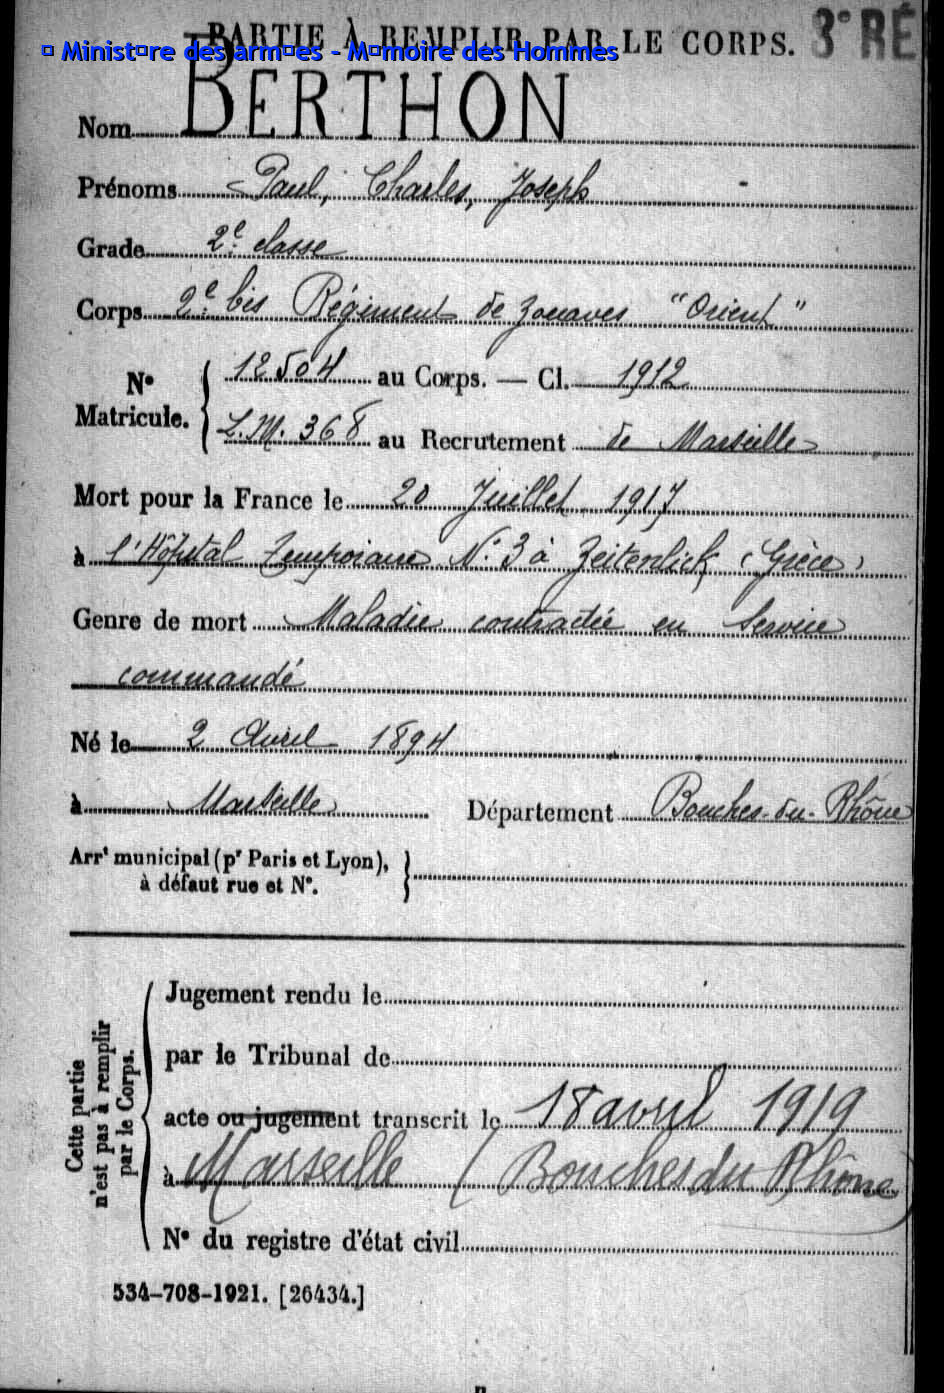 PARTIE À REMPLIR PAR LE CORPS. 3e RÉ
© Ministère des armées - Mémoire des Hommes
Nom BERTHON
Prénoms Paul, Charles, Joseph
Grade 2e classe
Corps 2e bis Régiment de Zouaves "Orient"
No Matricule. { 12504 au Corps. — Cl. 1912
L.M. 368 au Recrutement de Marseille
Mort pour la France le 20 Juillet 1917
à l'Hôpital Temporaire N° 3 à Zeitenlick (Grèce)
Genre de mort Maladie contractée en Service
commandé
Né le 2 Avril 1894
à Marseille Département Bouches-du-Rhône
Arrt municipal (pr Paris et Lyon),
à défaut rue et N°.
Cette partie n'est pas à remplir par le Corps.
Jugement rendu le
par le Tribunal de
acte ou jugement transcrit le 18 avril 1919
à Marseille (Bouches du Rhône)
N° du registre d'état civil
534-708-1921. [26434.]